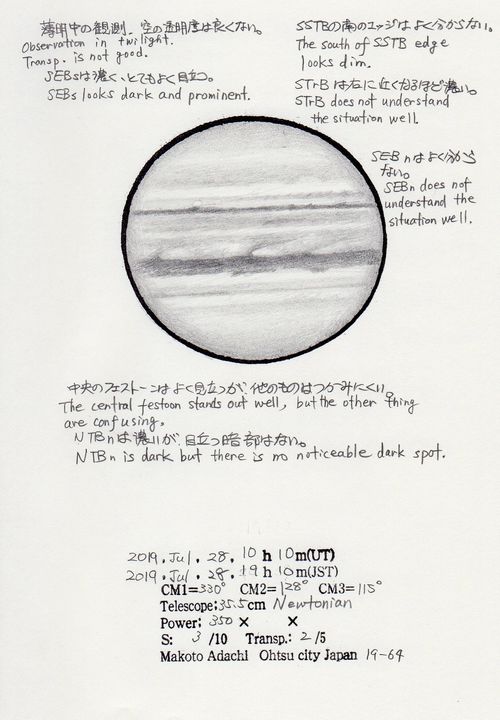 薄明中の観測。空の透明度は良くない。
Observation in twilight.
Transp. is not good.
SEBsは濃く、とてもよく目立つ。
SEBs looks dark and prominent.
SSTBの南のエッジはよく分からない。
The south of SSTB edge
looks dim.
STrBは右に近くなるほど濃い。
STrB does not understand
the situation well.
SEBnはよく分から
ない。
SEBn does not
understand the
situation well.
中央のフェストーンはよく目立つが、他のものはつかみにくい。
The central festoon stands out well, but the other thing
are confusing.
NTBnは濃いが、目立つ暗部はない。
NTBn is dark but there is no noticeable dark spot.
2019. Jul. 28. 10 h 10 m(UT)
2019. Jul. 28. 19 h 10 m(JST)
CM1=330° CM2=128° CM3=115°
Telescope: 35.5cm Newtonian
Power: 350 × ×
S: 3 /10 Transp.: 2 /5
Makoto Adachi Ohtsu city Japan 19-64